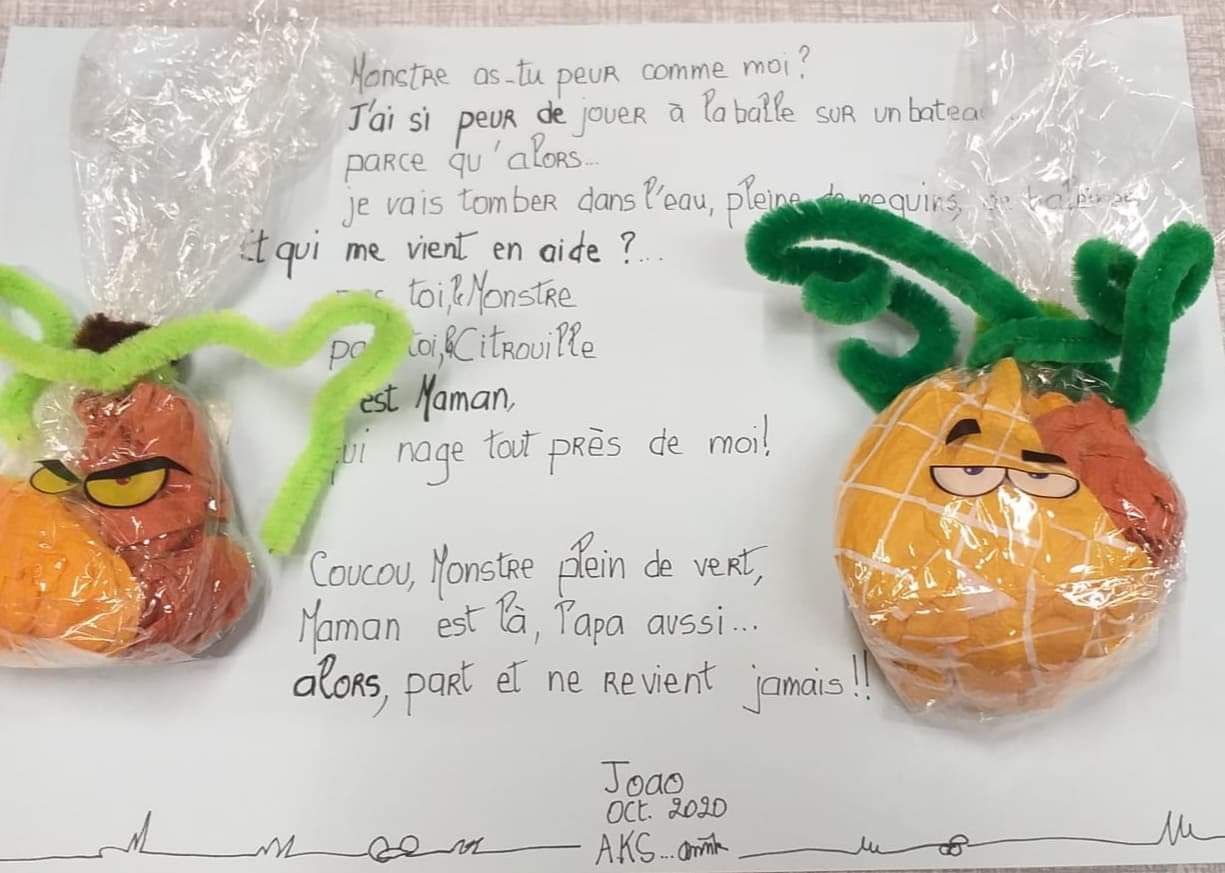 Monstre as-tu peur comme moi?
J'ai si peur de jouer à la balle sur un bateau
parce qu'alors...
je vais tomber dans l'eau, pleine de requins,
Et qui me vient en aide?...
toi, le Monstre
toi, la Citrouille
est Maman,
qui nage tout près de moi!
Coucou, Monstre plein de vert,
Maman est là, Papa aussi...
alors, part et ne revient jamais!!
Joao
Oct. 2020
AKS...